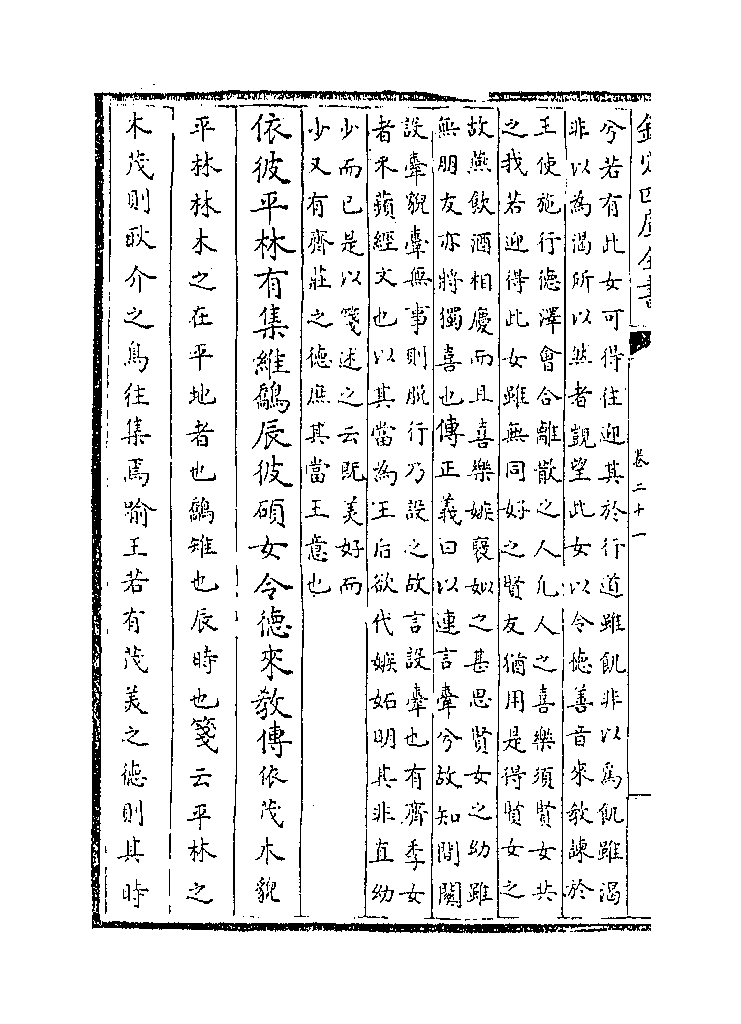 欽定四庫全書
卷二十一
兮若有此女可得往迎其於行道雖飢非以為飢雖渴
非以為渴所以然者覬望此女以令德善音來教諫於
王使施行德澤會合離散之人凡人之喜樂須賢女共
之我若迎得此女雖無同好之賢友猶用是得賢女之
故燕飲酒相慶而且喜樂嫉襃姒之甚思賢女之幼雖
無朋友亦將獨喜也傳正義曰以連言舝兮故知間關
設舝貌舝無事則脱行乃設之故言設舝也有齊季女
者采蘋經文也以其當為王后欲代嫉妬明其非直幼
少而已是以箋述之云既美好而
少又有齊莊之德庶其當王意也
依彼平林有集維鷮辰彼碩女令德來教傳依茂木貌
平林林木之在平地者也鷮雉也辰時也箋云平林之
木茂則耿介之鳥往集焉喻王若有茂美之德則其時